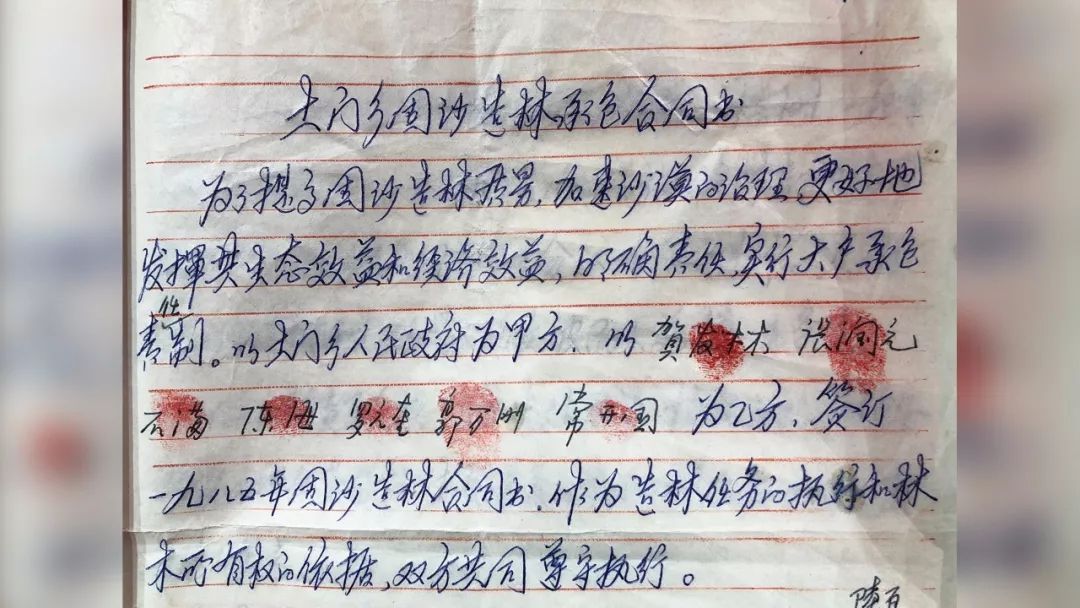 土门乡固沙造林承包合同书
为了提高固沙造林质量,加速沙漠的治理,更好地
发挥其生态效益和经济效益,明确责任,实行大户承包
责任制。以土门乡人民政府为甲方,以 贺发林 张润元
石满 陈海 罗元奎 郭万刚 常开国 为乙方,签订
一九八五年固沙造林合同书,作为造林任务的执行和林
木所有权的依据,双方共同尊守执行。